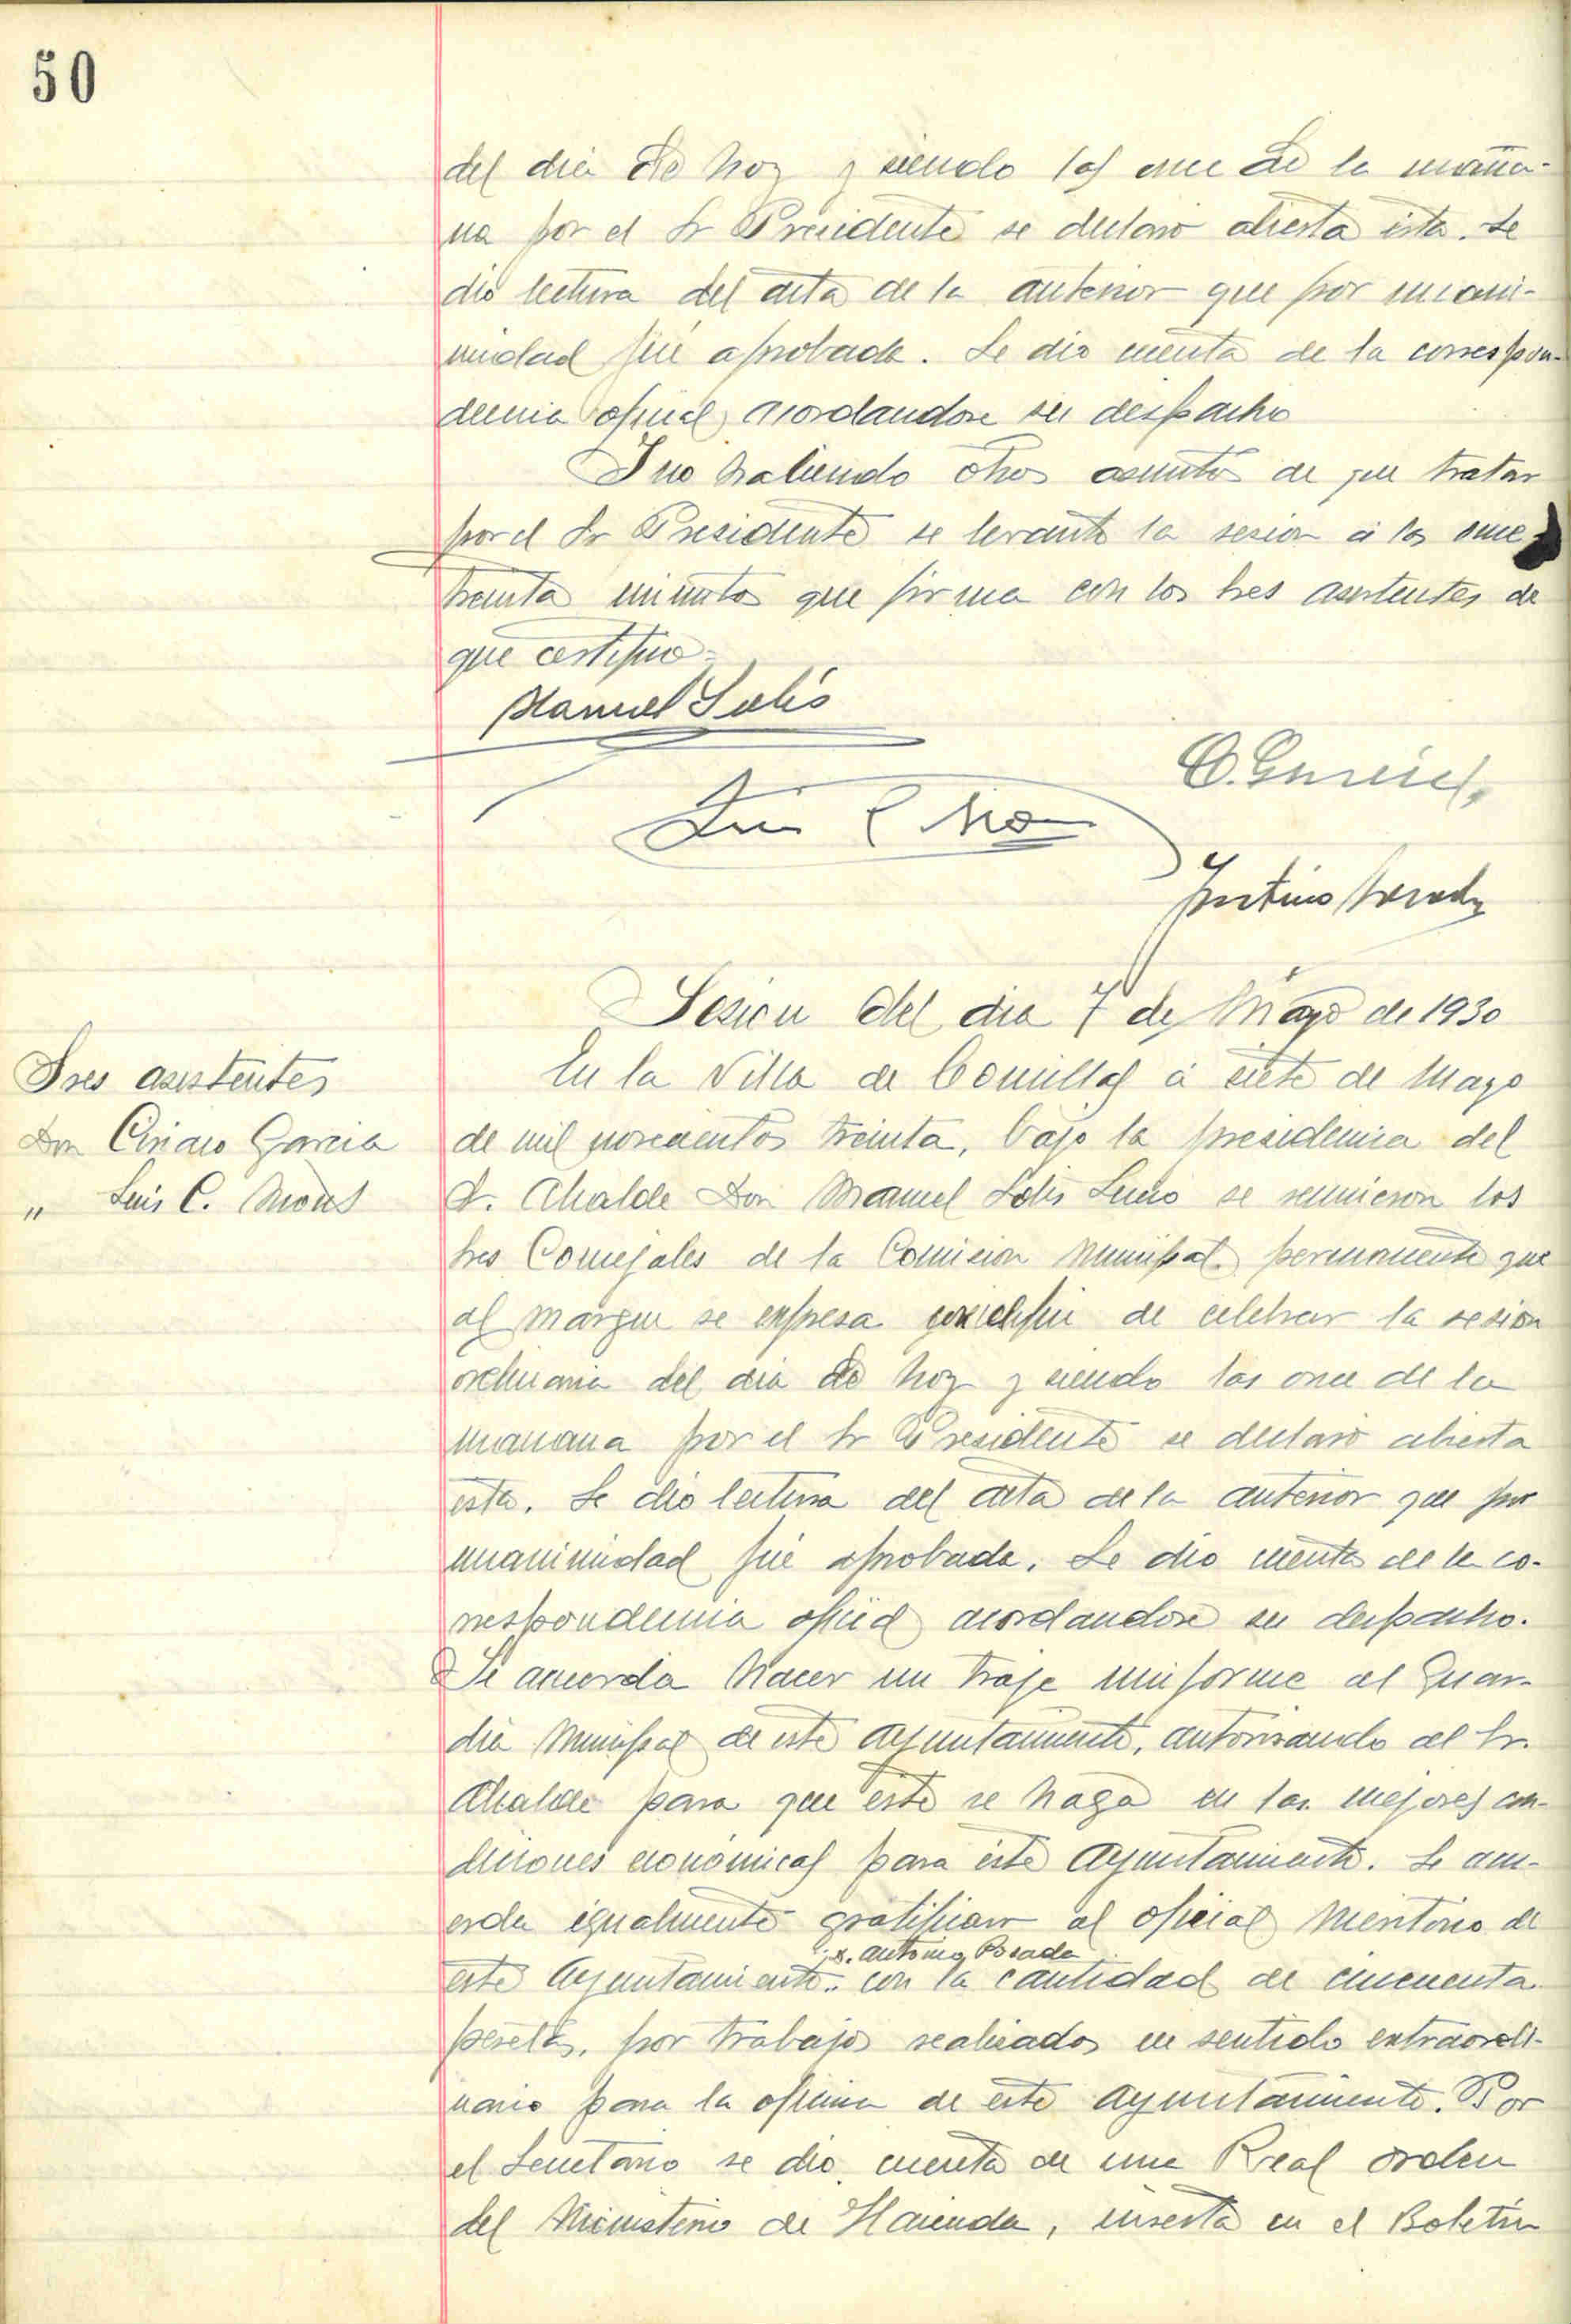 50
del dia de hoy y siendo las once de la maña-
na por el Sr Presidente se declaro abierta esta. Se
dio lectura del acta de la anterior que por unani-
midad fué aprobada. Se dio cuenta de la correspon-
dencia oficial acordandose su despacho
Y no habiendo otros asuntos de que tratar
por el Sr Presidente se levantó la sesion á las once
treinta minutos que firma con los Sres asistentes de
que certifico=
Manuel Solís
C. García
Luis C
Justino
Sesion del dia 7 de Mayo de 1930
Sres asistentes
Don Ciriaco Garcia
" Luis C.
En la Villa de Comillas á siete de Mayo
de mil novecientos treinta, bajo la presidencia del
Sr. Alcalde Don Manuel Solis se reunieron los
Sres Concejales de la Comision Municipal permanente que
al margen se expresa con el fin de celebrar la sesion
ordinaria del dia de hoy y siendo las once de la
manana por el Sr Presidente se declaró abierta
esta. Se dio lectura del acta de la anterior que por
unanimidad fué aprobada. Se dio cuenta de la co-
rrespondencia oficial acordandose su despacho.
Se acuerda hacer un traje uniforme al Guar-
dia Municipal de este Ayuntamiento, autorizando al Sr.
Alcalde para que este se haga en las mejores con-
diciones económicas para este Ayuntamiento. Se acu-
erda igualmente gratificar al oficial Meritorio de
D. Antonio Posada
este Ayuntamiento con la cantidad de cincuenta
pesetas, por trabajos realizados en sentido extraordi-
nario para la oficina de este Ayuntamiento. Por
el Secretario se dio cuenta de una Real orden
del Ministerio de Hacienda, inserta en el Boletin